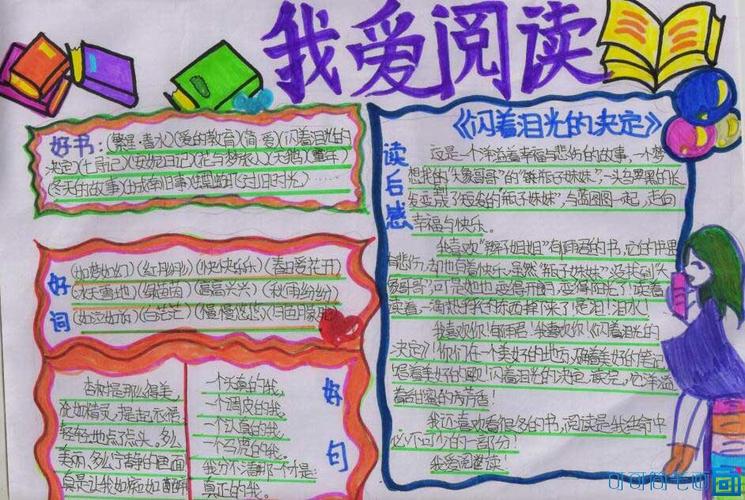 我爱阅读
好书：(繁星·春水)(爱的教育)(简·爱)(闪着泪光的
决定)(七号记)(安妮日记)(花与梦旅人)(天鹅)(童年)
(冬天的故事)(城南旧事)
好词
(如梦如幻)(红月明沙)(快快乐乐)(春日爱花开)
(冰天雪地)(绿莲荷)(高高兴兴)(秋雨纷纷)
(白茫茫)(慢慢悠悠)
好句
杏树是那么得美，
宛如精灵，提起衣裙，
轻轻地点了点头，多么
美丽，多么宁静的画面，
真是让我如痴如醉
一个天真的我，
一个调皮的我，
一个认真的我，
一个马虎的我。
我分不清哪一个是
真正的我。
《闪着泪光的决定》
读后感
这是一个洋溢着幸福与悲伤的故事，一个梦
想我的“大象哥哥”的“辫瓶子妹妹”，一头白苹果的长
发变成了短发的瓶子妹妹，与蓝图图一起，走向
幸福与快乐。
我喜欢“辫子姐姐”郁雨君的书，它的世界
有悲伤，却也有着快乐，虽然“瓶子妹妹”没找到“大
象哥哥”，可是她也变得开朗，变得阳光了！读着
读着，滴热乎乎的东西掉下来了，是泪！泪水！
我喜欢你！郁雨君！我喜欢你！《闪着泪光的
决定》！你们在一个美好的地方，用着美好的笔记，
写着美好的歌！闪着泪光的决定，读完，它洋溢
着甜蜜的芳芳香！
我还喜欢看很多的书，阅读是我生命中
必不可少的一部分！
我爱阅读